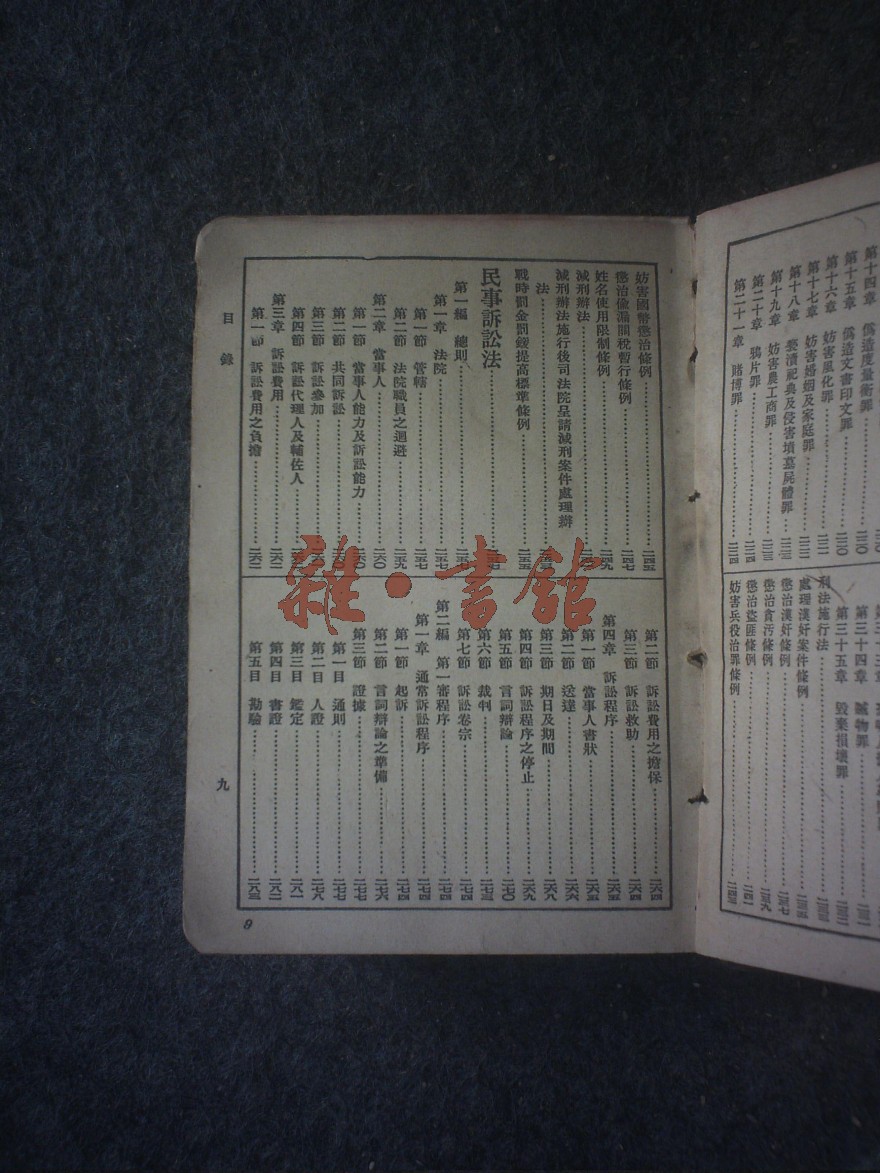 第十四章
第十五章 偽造度量衡罪
第十六章 偽造文書印文罪
第十七章 妨害風化罪
第十八章 妨害婚姻及家庭罪
第十九章 褻瀆祀典及侵害墳墓屍體罪
第二十章 妨害農工商罪
鴉片罪
第二十一章 賭博罪
第三十四章 贓物罪
第三十五章 毀棄損壞罪
刑法施行法
處理漢奸案件條例
懲治漢奸條例
懲治貪汚條例
懲治盜匪條例
妨害兵役治罪條例
妨害國幣懲治條例……二四五
懲治偷漏關稅暫行條例……二四七
姓名使用限制條例
減刑辦法
減刑辦法施行後司法院呈請減刑案件處理辦
法
戰時罰金罰鍰提高標準條例……二五五
民事訴訟法
第一編 總則……二五七
第一章 法院……二五七
第一節 管轄……二五七
第二節 法院職員之迴避……二五九
第二章 當事人……二六〇
第一節 當事人能力及訴訟能力……二六〇
第二節 共同訴訟
第三節 訴訟參加
第四節 訴訟代理人及輔佐人
第三章 訴訟費用
第一節 訴訟費用之負擔
第二節 訴訟費用之擔保……二六四
第三節 訴訟救助……二六四
第四章 訴訟程序……二六五
第一節 當事人書狀……二六五
第二節 送達……二六六
第三節 期日及期間……二六八
第四節 訴訟程序之停止……二六九
第五節 言詞辯論……二七〇
第六節 裁判……二七三
第七節 訴訟卷宗
第二編 第一審程序……二七四
第一章 通常訴訟程序……二七四
第一節 起訴……二七四
第二節 言詞辯論之準備……二七六
第三節 證據……二七七
第一目 通則……二七七
第二目 人證……二七八
第三目 鑑定……二八一
第四目 書證……二八二
第五目 勘驗……二八三
目錄
九
9
雜·書館